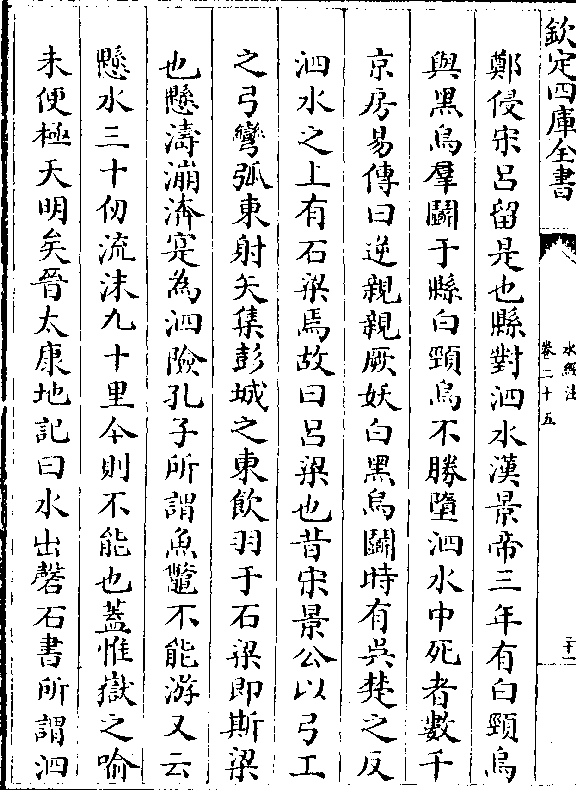 欽定四庫全書
水經注
卷二十五
鄭侵宋呂留是也縣對泗水漢景帝三年有白頸烏
與黑烏羣鬭于縣白頸烏不勝墮泗水中死者數千
京房易傳曰逆親親厥妖白黑烏鬭時有吳楚之反
泗水之上有石梁焉故曰呂梁也昔宋景公以弓工
之弓彎弧東射矢集彭城之東飲羽于石梁即斯梁
也懸濤漰濟寔為泗險孔子所謂魚鼈不能游又云
懸水三十仞流沫九十里今則不能也蓋惟嶽之喻
未便極天明矣晉太康地記曰水出磬石書所謂泗